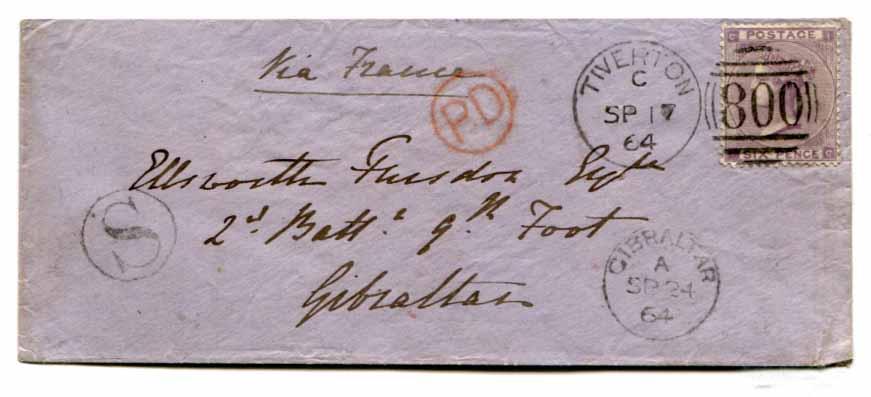 Via France
PD
TIVERTON
C
SP 17
64
POSTAGE
G I
800
SIX PENCE
I G
Ellsworth Fursdon Esqre
2d. Battn. 9th Foot
Gibraltar
S
GIBRALTAR
A
SP 24
64